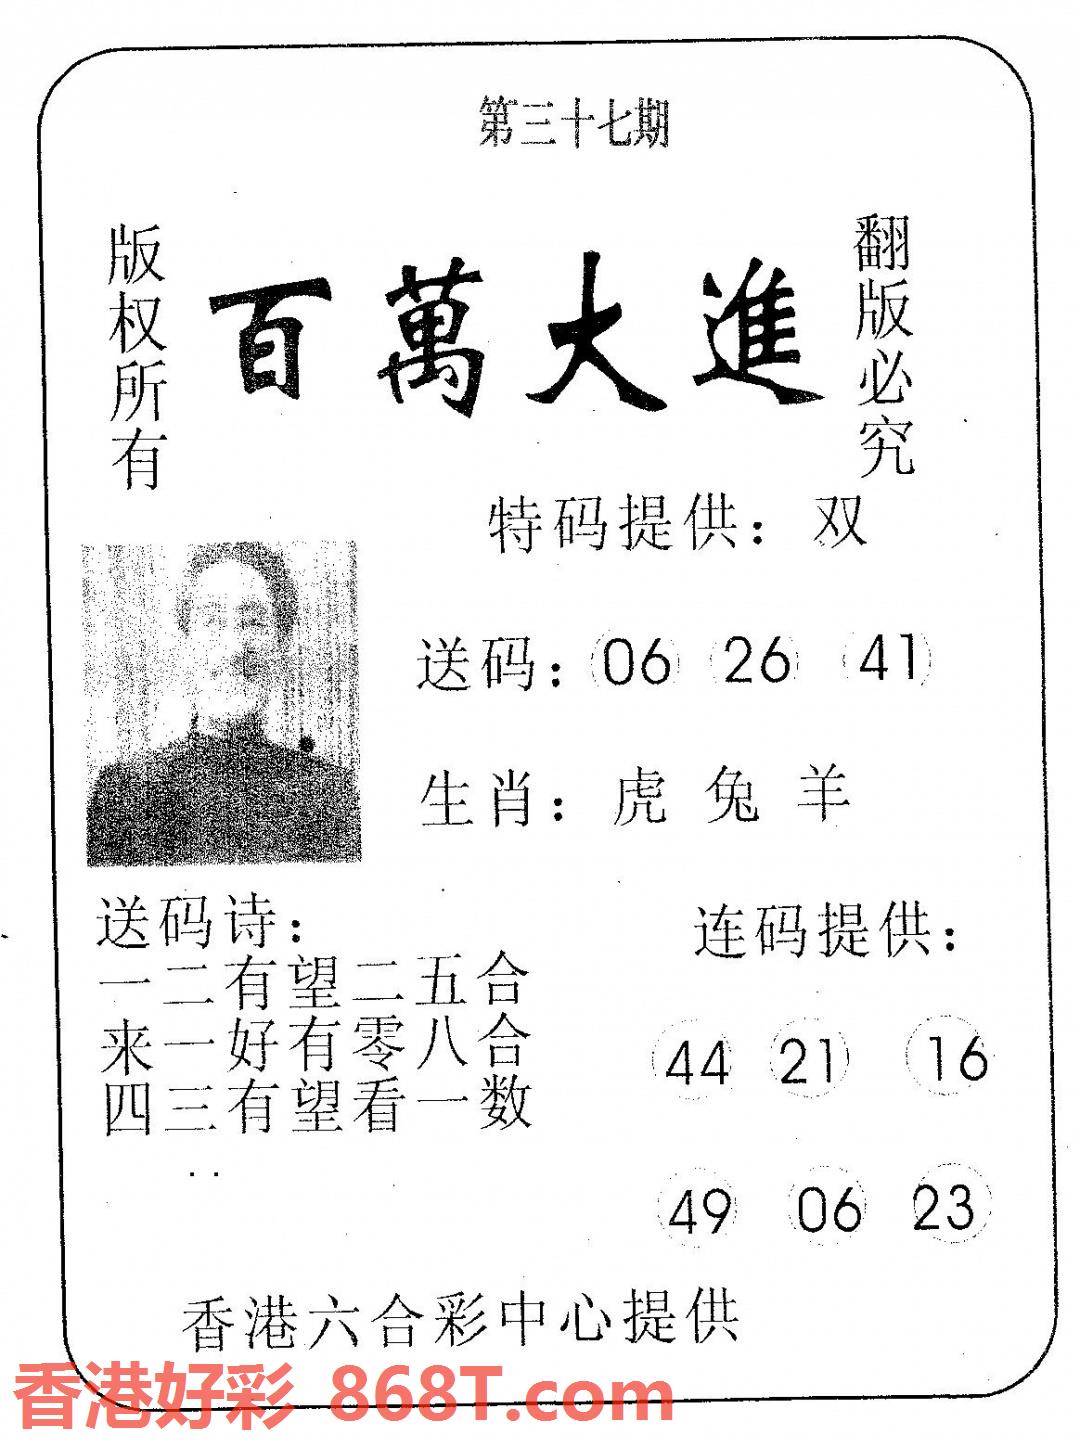 第三十七期
版权所有
百萬大進
翻版必究
特码提供：双
送码：06 26 41
生肖：虎 兔 羊
送码诗：
一二有望二五合
来一好有零八合
四三有望看一数
连码提供：
44 21 16
49 06 23
香港六合彩中心提供
香港好彩 868T.com